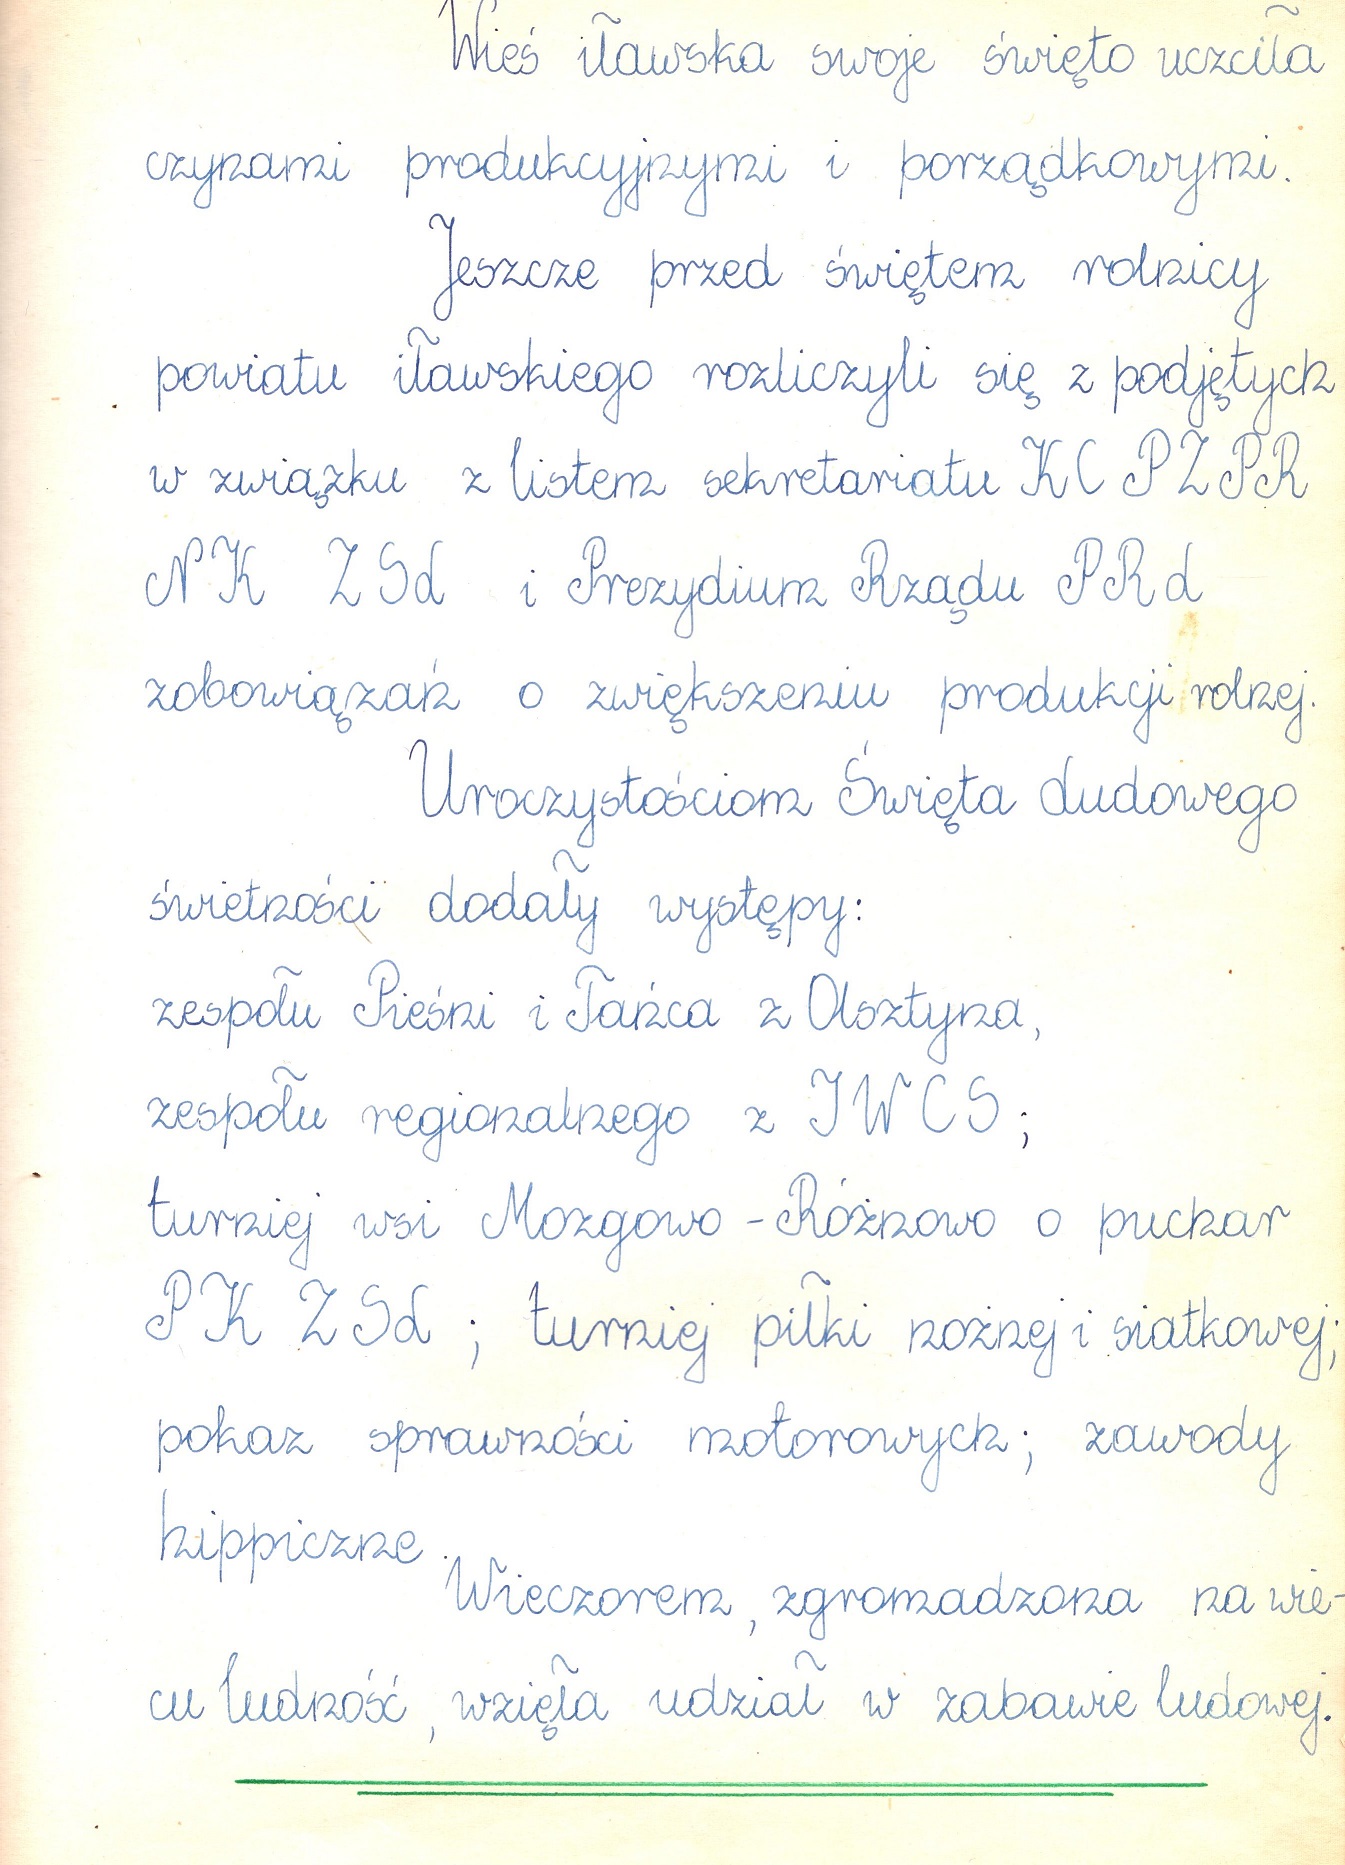 Wieś iławska swoje święto uczciła
czynami produkcyjnymi i porządkowymi.
Jeszcze przed świętem rolnicy
powiatu iławskiego rozliczyli się z podjętych
w związku z listem sekretariatu KC PZPR
NK ZSL i Prezydium Rządu PRL
zobowiązań o zwiększeniu produkcji rolnej.
Uroczystościom Święta Ludowego
świetności dodały występy:
zespołu Pieśni i Tańca z Olsztyna,
zespołu regionalnego z IWCS;
turniej wsi Mozgowo - Różnowo o puchar
PK ZSL; turniej piłki nożnej i siatkowej;
pokaz sprawności motorowych; zawody
hippiczne.
Wieczorem, zgromadzona na wie-
cu ludność, wzięła udział w zabawie ludowej.